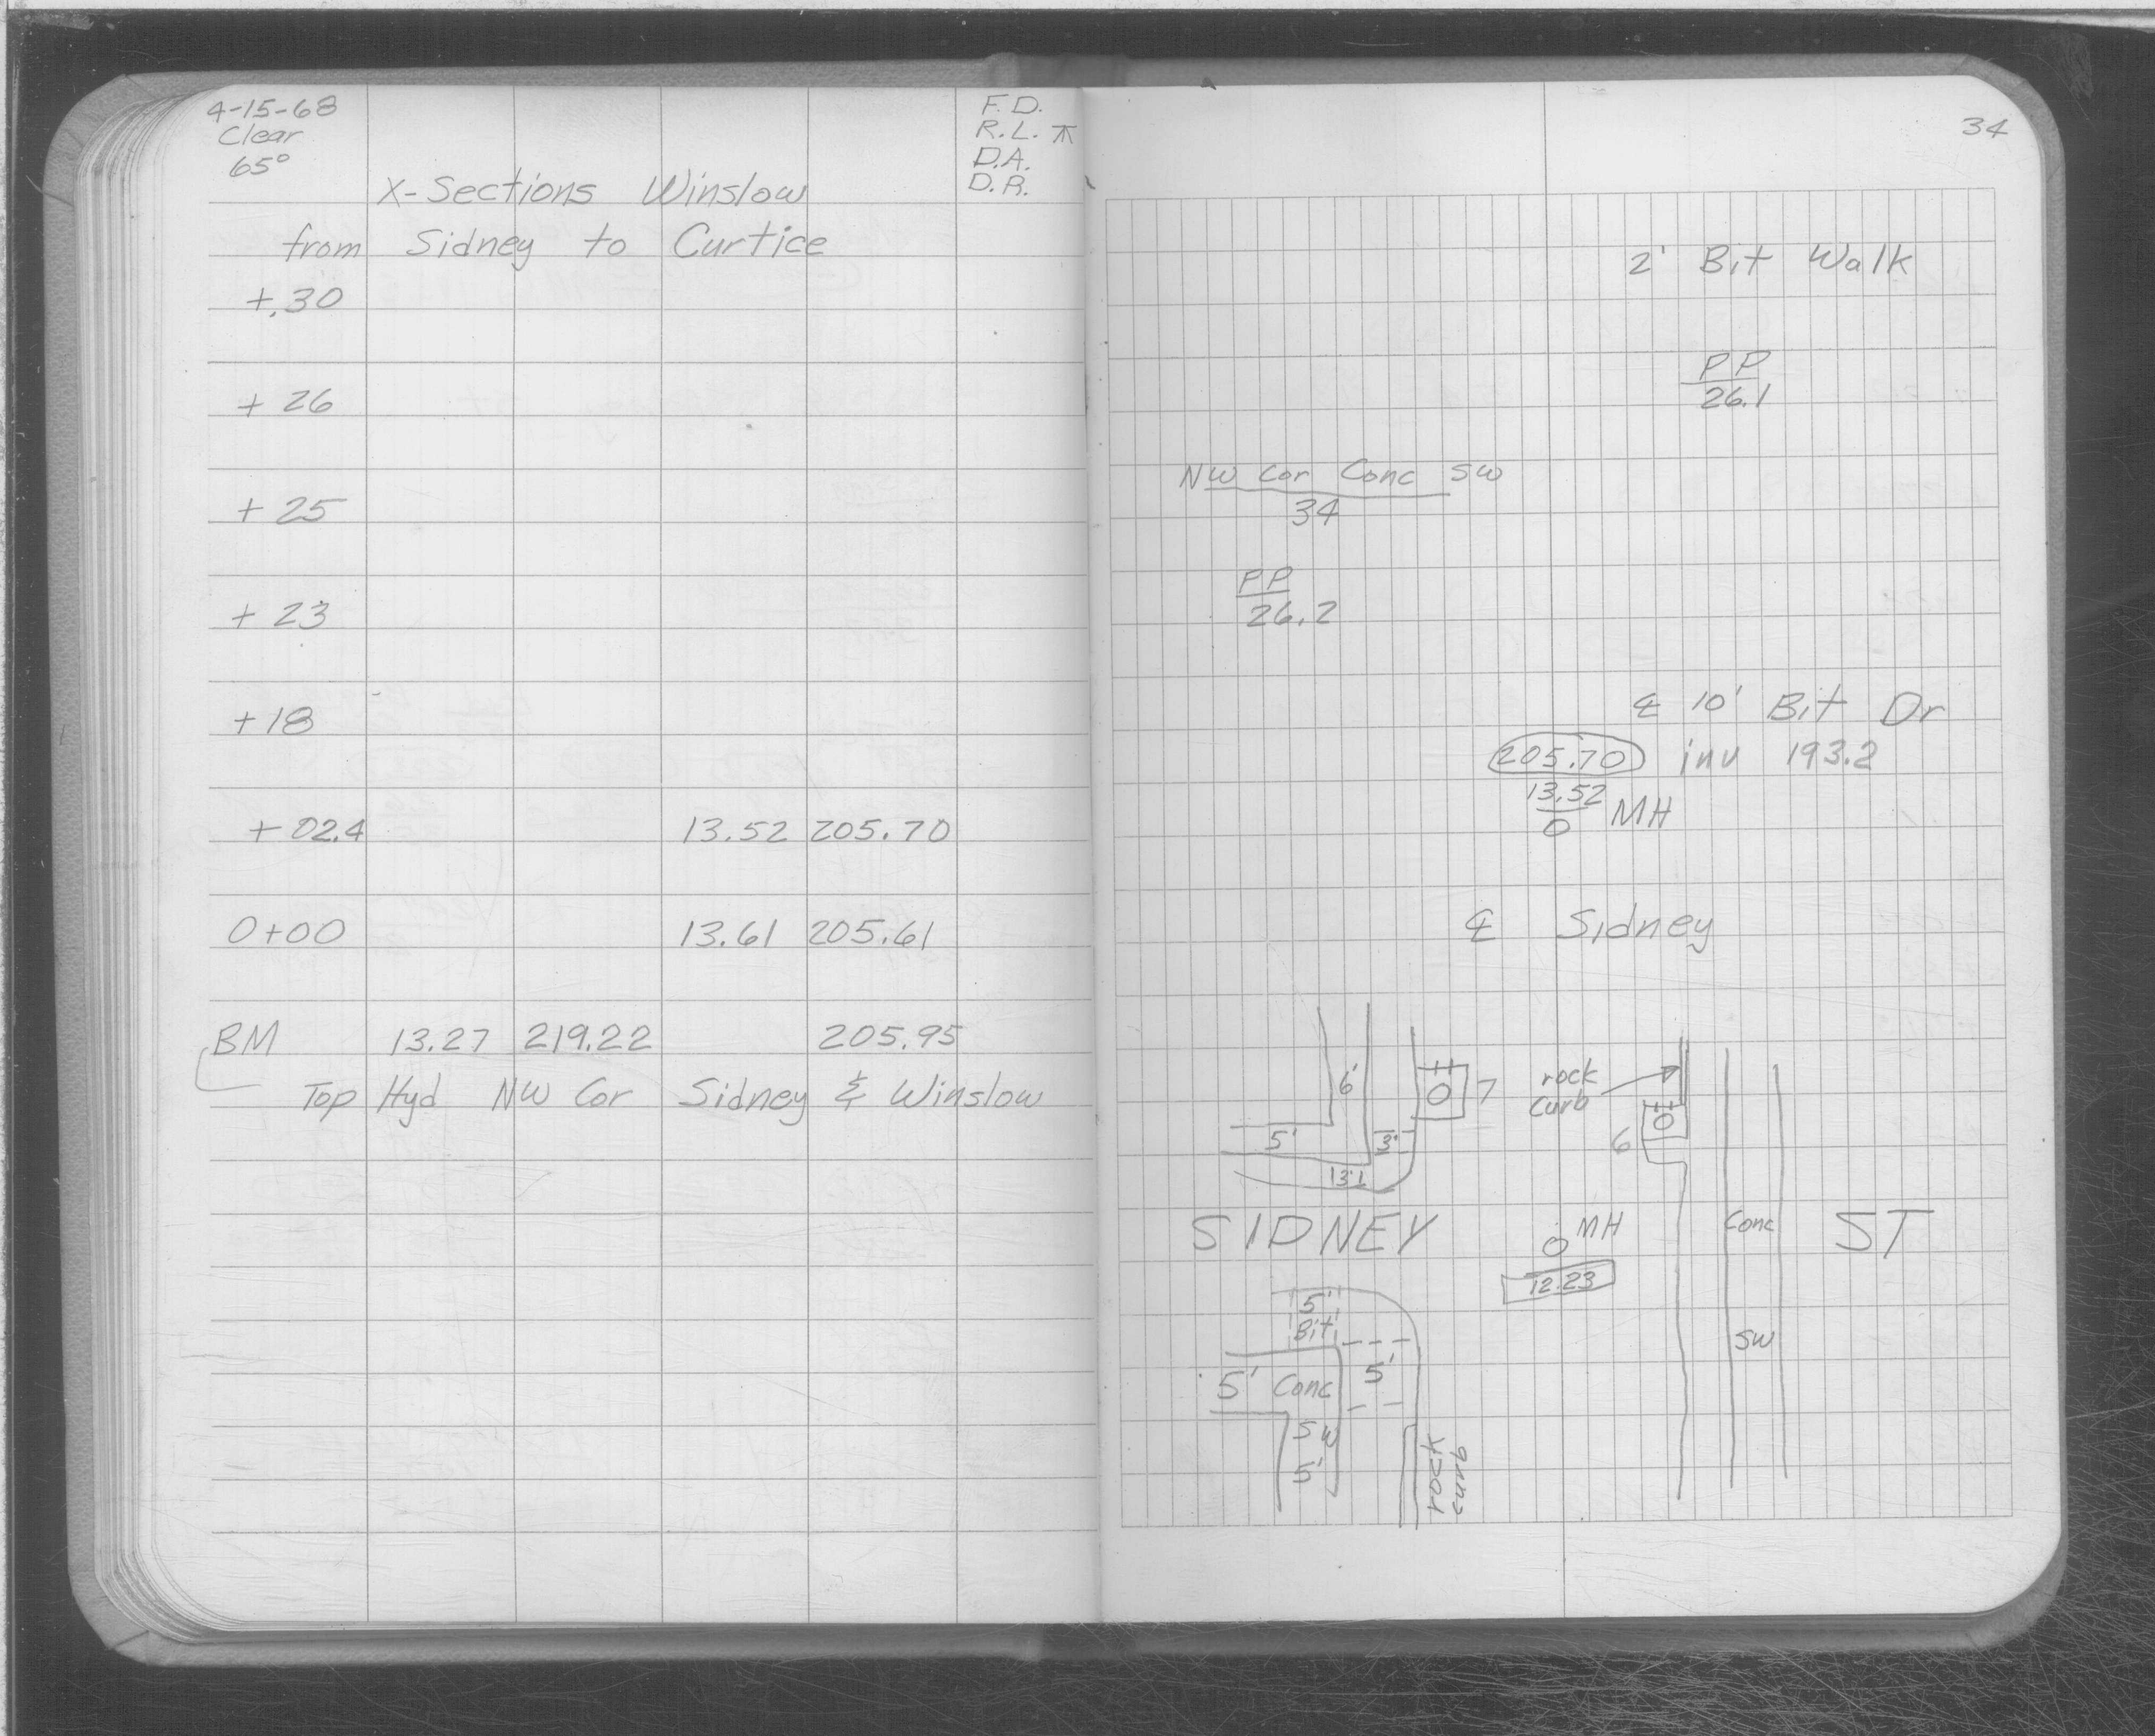 4-15-68
Clear
65°
F.D.
R.L. ⊼
D.A.
D.R.
X-Sections Winslow
from Sidney to Curtice
+.30
+ 26
+ 25
+ 23
+ 18
+ 02.4 13.52 205.70
0+00 13.61 205.61
BM 13.27 219.22 205.95
Top Hyd NW Cor Sidney & Winslow
34
2' Bit Walk
PP
26.1
NW Cor Conc SW
34
PP
26.2
℄ 10' Bit Dr
205.70 inv 193.2
13.52
0 MH
℄ Sidney
6'
7
rock
curb
5'
3'
6
13'
SIDNEY
MH
Conc
ST
12.23
5'
Bit
SW
5' Conc
5'
SW
5'
rock
curb